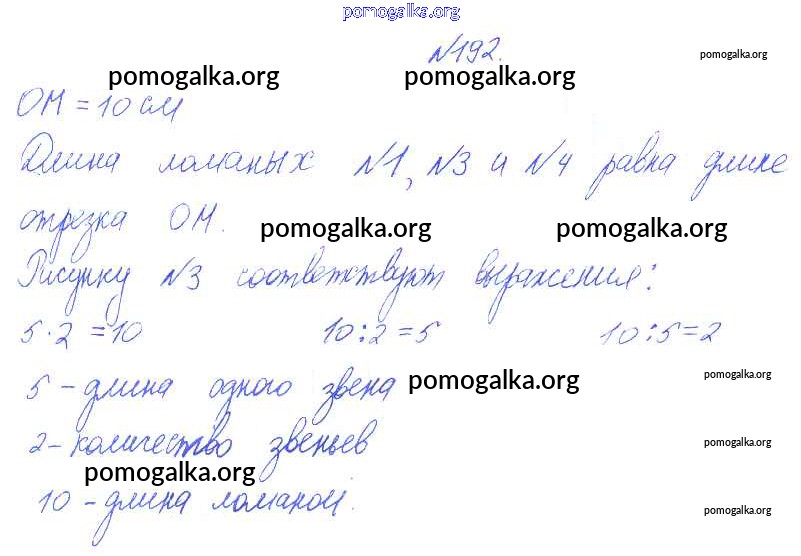 pomogalka.org
№192.
pomogalka.org
pomogalka.org pomogalka.org
ОМ = 10 см
Длина ломаных №1, №3 и №4 равна длине
отрезка ОМ.
pomogalka.org pomogalka.org
Рисунку №3 соответствуют выражения:
5·2=10 10:2=5 10:5=2
5 - длина одного звена
pomogalka.org pomogalka.org
2 - количество звеньев
pomogalka.org
pomogalka.org
10 - длина ломаной.
pomogalka.org